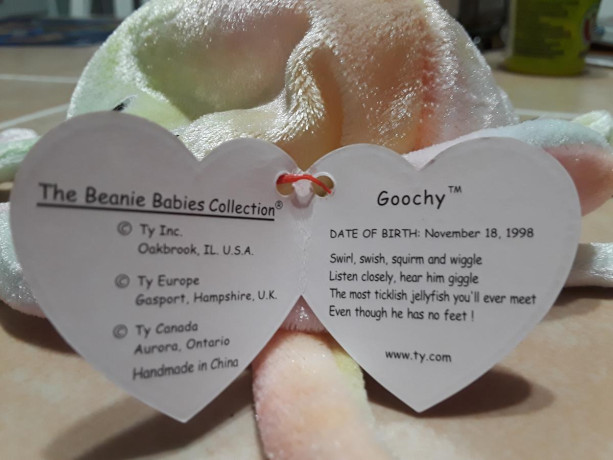 The Beanie Babies Collection®
© Ty Inc.
Oakbrook, IL. U.S.A.
© Ty Europe
Gasport, Hampshire, U.K.
© Ty Canada
Aurora, Ontario
Handmade in China
Goochy™
DATE OF BIRTH: November 18, 1998
Swirl, swish, squirm and wiggle
Listen closely, hear him giggle
The most ticklish jellyfish you'll ever meet
Even though he has no feet !
www.ty.com